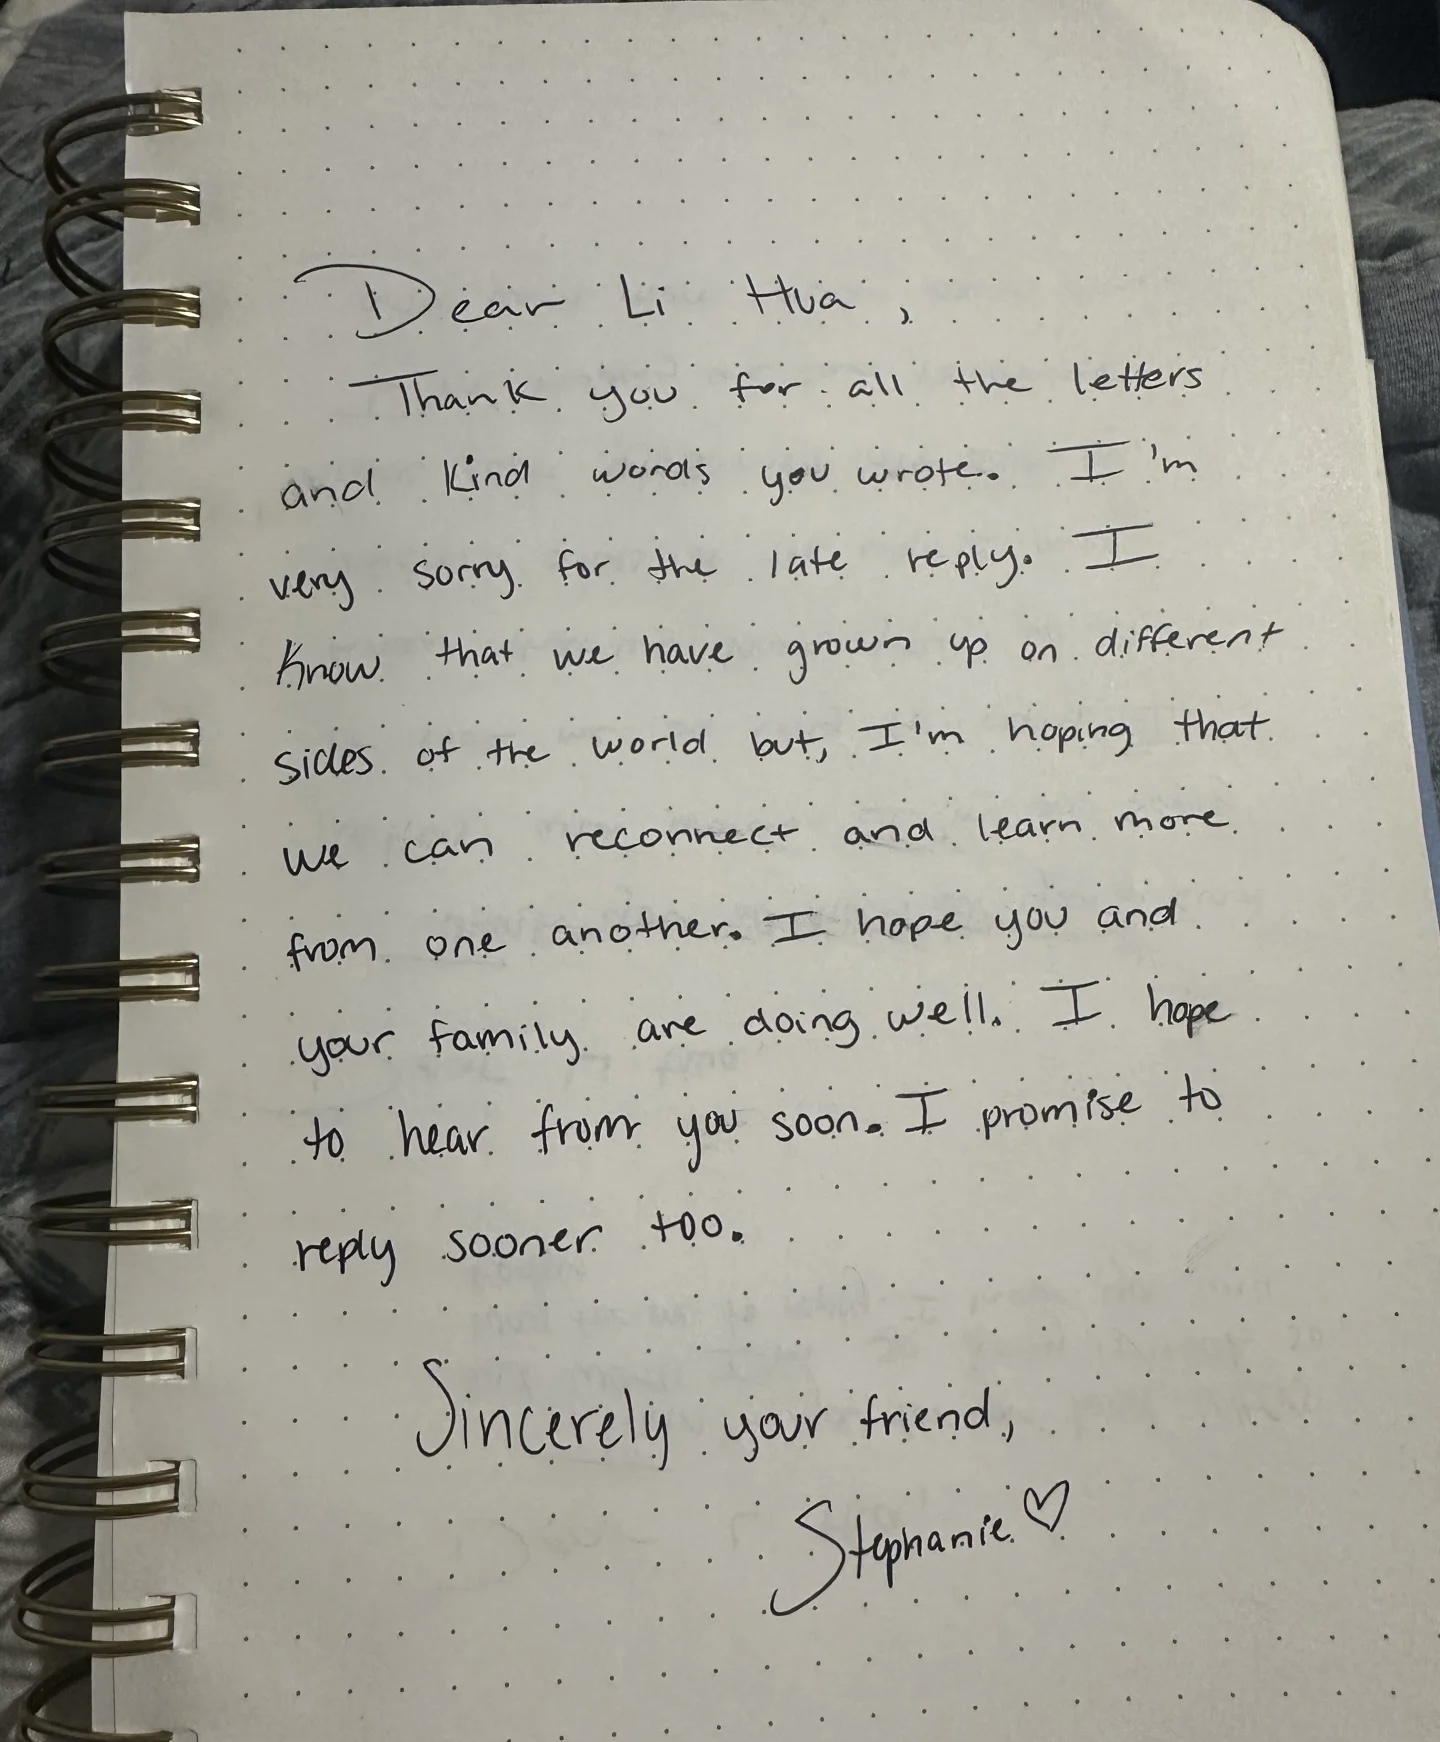 Dear Li Hua,
Thank you for all the letters
and kind words you wrote. I'm
very sorry for the late reply. I
know that we have grown up on different
sides of the world but, I'm hoping that
we can reconnect and learn more
from one another. I hope you and
your family are doing well. I hope
to hear from you soon. I promise to
reply sooner too.
Sincerely your friend,
Stephanie ♡